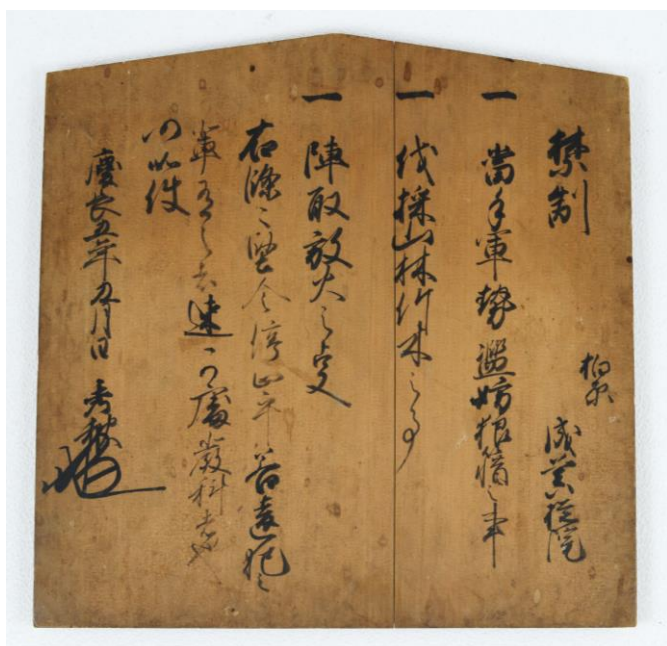 禁制
一 當手軍勢濫妨狼藉之事
一 伐採山林竹木之事
一 陣取放火之事
右條々堅令停止畢若違犯之
輩有之者速可處嚴科者也
仍如件
慶長五年九月日 秀